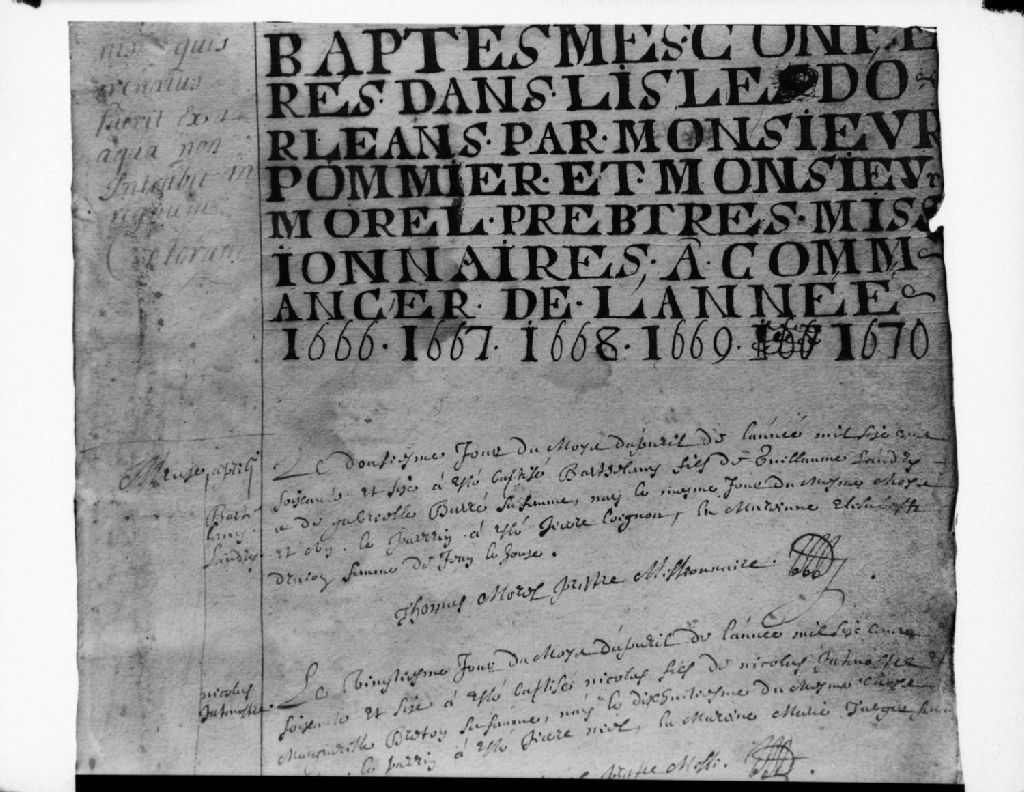 nisi quis
renatus
fuerit ex
aqua non
Intrabit in
regnum
Cœlorum
BAPTESMES·CONFE
RES·DANS·LISLE DO
RLEANS·PAR·MONSIEVR
POMMIER·ET·MONSIEVr
MOREL·PREBTRES·MISS
IONNAIRES·A·COMM
ANCER·DE·LANNÉE
1666·1667·1668·1669· 1670
Barthelemy
Landry
Le dousiesme Jour du Moys dapuril de lánnée mil sixe cens
soixante et sixe à esté baptisé Barthelemy fils de Guillaume Landry
& de gabrielle Barré sa femme, nay le mesme Jour du mesme Moys
et an. le parrin à esté Pierre Loignon, la Marenne Elisabeth
femme de Jean le houx.
Thomas Morel prestre Missionnaire
nicolas
Le Vingtiesme Jour du Moys dápuril de lánnée mil sixe cens
soixante et sixe à esté baptisé nicolas fils de nicolas
Marguerille Breton sa femme, nay le dixhuitiesme du Mesme Moys
le parrin à esté Pierre niel, la Marenne Marie
prestre Missi.